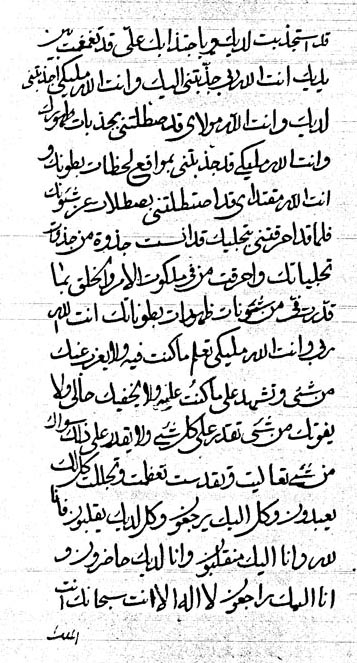 قد استجذبت لديك وبا جتذابك علی قد تغمغمت بين
يديك انت الله ربی جذبتنی اليك وانت الله مليکی اجذبتنی
لديك وانت الله مولای قد صطلتنی بجذبات ظهورك
وانت الله مليکی قد جذبتنی بمواقع لحظات بطونك و
انت الله مقتدای قد اصتطلتنی بصطلات عز شئونك
فلما قد احرقتنی بتجليك قد انست جذوة من جذوات
تجلياتك واحرقت من فی ملكوت الامر والخلق بما
قدرت فی من شئونات ظهورات بطوناتك انت الله
ربی وانت الله مليکی تعلم ما كنت فيه ولا يعزب عنك
من شئ وتشهد علی ما كنت عليه ولا يخفيك حالی ولا
يفوتك من شئ تقدر علی كل شئ ولا يقدر علی ذلك سواك
من شئ تعاليت وتقدست تعظمت وتجللت كل لك
يعبدون وكل اليك يرجعون وكل لديك يقلبون فانا
لله وانا اليك منقلبون وانا لديك حاضرون و
انا اليك راجعون لا اله الا انت سبحانك انت